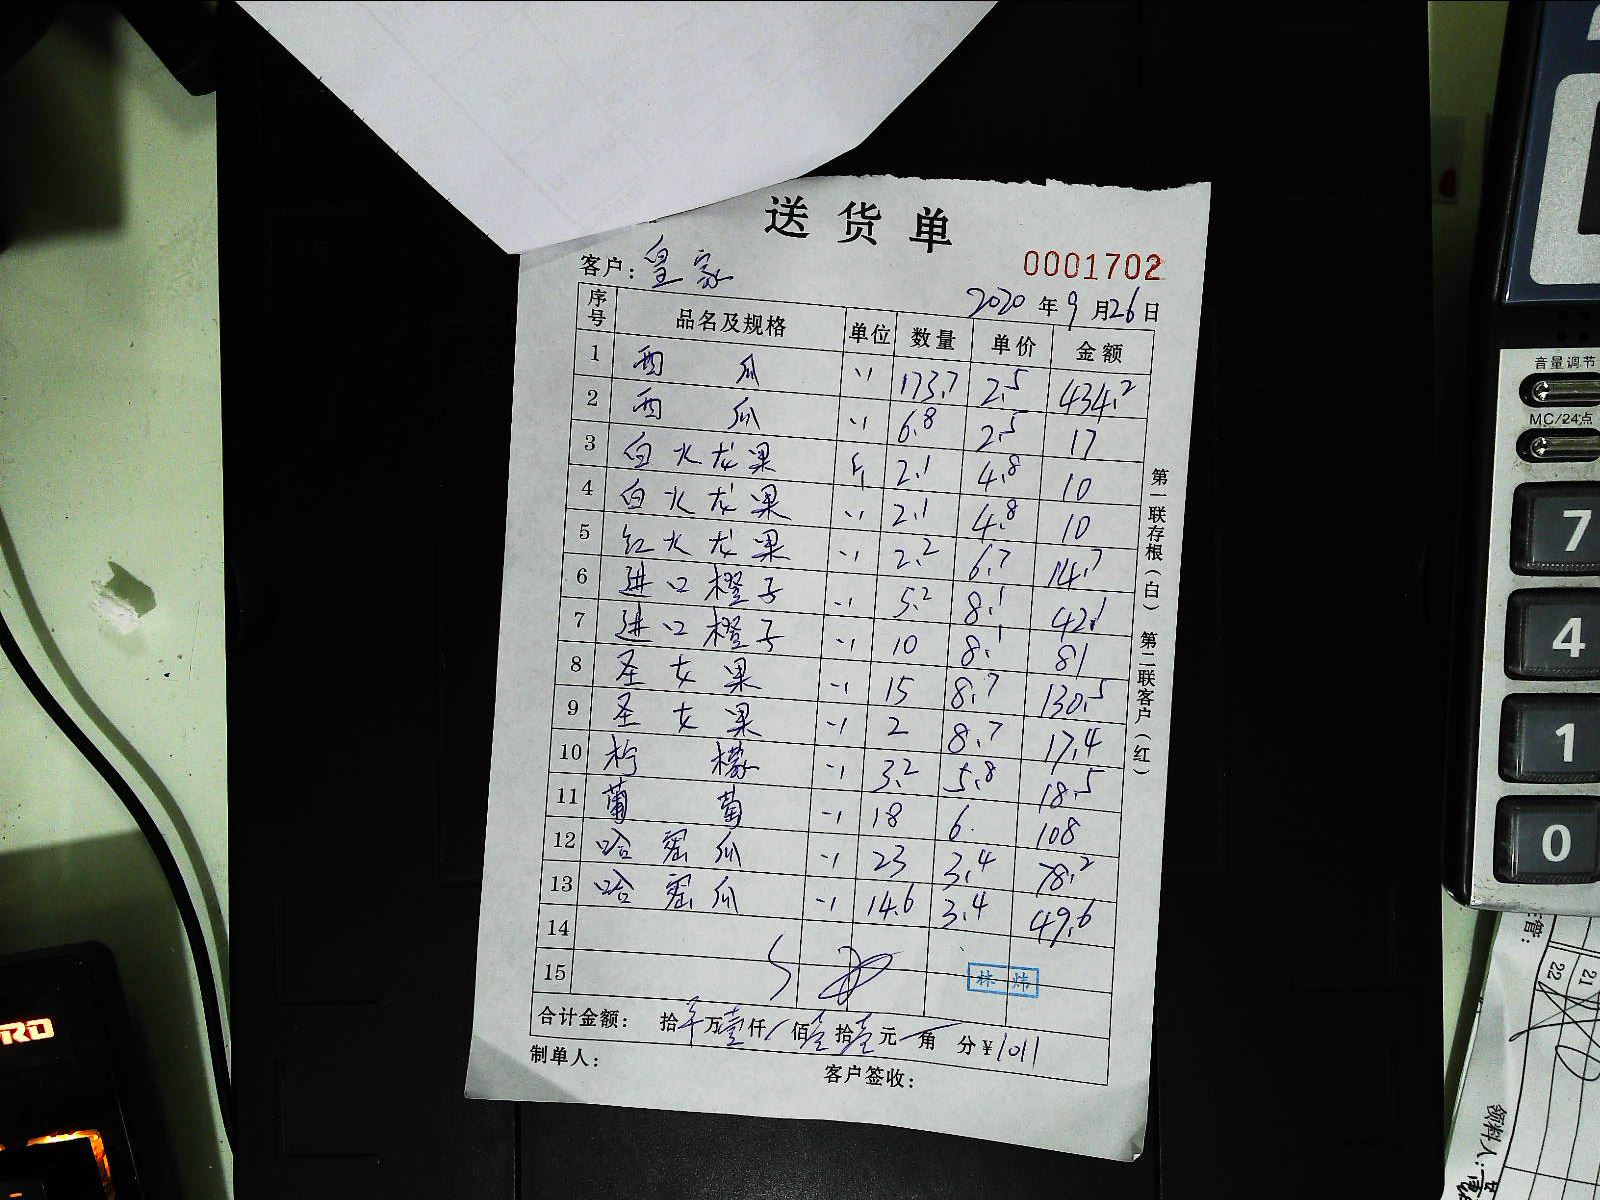 送货单
客户: 皇家 0001702
2020年9月26日
序号 品名及规格 单位 数量 单价 金额
1 西瓜 〃 173.7 2.5 434.2
2 西瓜 〃 6.8 2.5 17
3 白火龙果 斤 2.1 4.8 10
4 白火龙果 〃 2.1 4.8 10
5 红火龙果 〃 2.2 6.7 14.7
6 进口橙子 〃 5.2 8.1 42.1
7 进口橙子 〃 10 8.1 81
8 圣女果 〃 15 8.7 130.5
9 圣女果 〃 2 8.7 17.4
10 柠檬 〃 3.2 5.8 18.5
11 葡萄 〃 18 6. 108
12 哈蜜瓜 〃 23 3.4 78.2
13 哈蜜瓜 〃 14.6 3.4 49.6
14
15
林炜
合计金额: 拾 万壹仟 佰壹拾壹元 角 分¥1011
制单人:
客户签收:
第一联存根(白) 第二联客户(红)
音量调节
MC/24点
7
4
1
0
RO
管:
22
21
领料人: